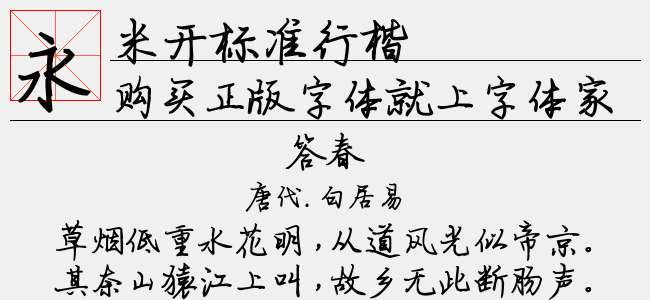 永
米开标准行楷
购买正版字体就上字体家
答春
唐代.白居易
草烟低重水花明,从道风光似帝京。
其奈山猿江上叫,故乡无此断肠声。